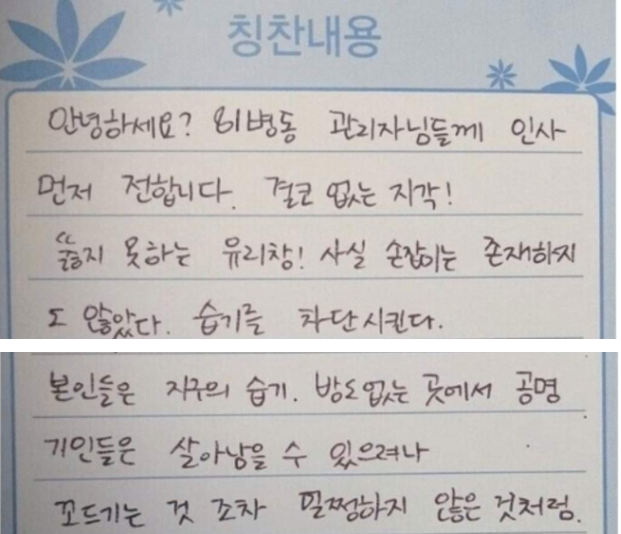 칭찬내용
안녕하세요? 81병동 관리자님들께 인사
먼저 전합니다. 결코 없는 지각!
"뚫지 못하는 유리창! 사실 손잡이는 존재하지
도 않았다. 습기를 차단시킨다.
본인들은 지구의 습기. 방도 없는 곳에서 공명
기인들은 살아남을 수 있으려나
꼬드기는 것 조차 멀쩡하지 않은 것처럼.